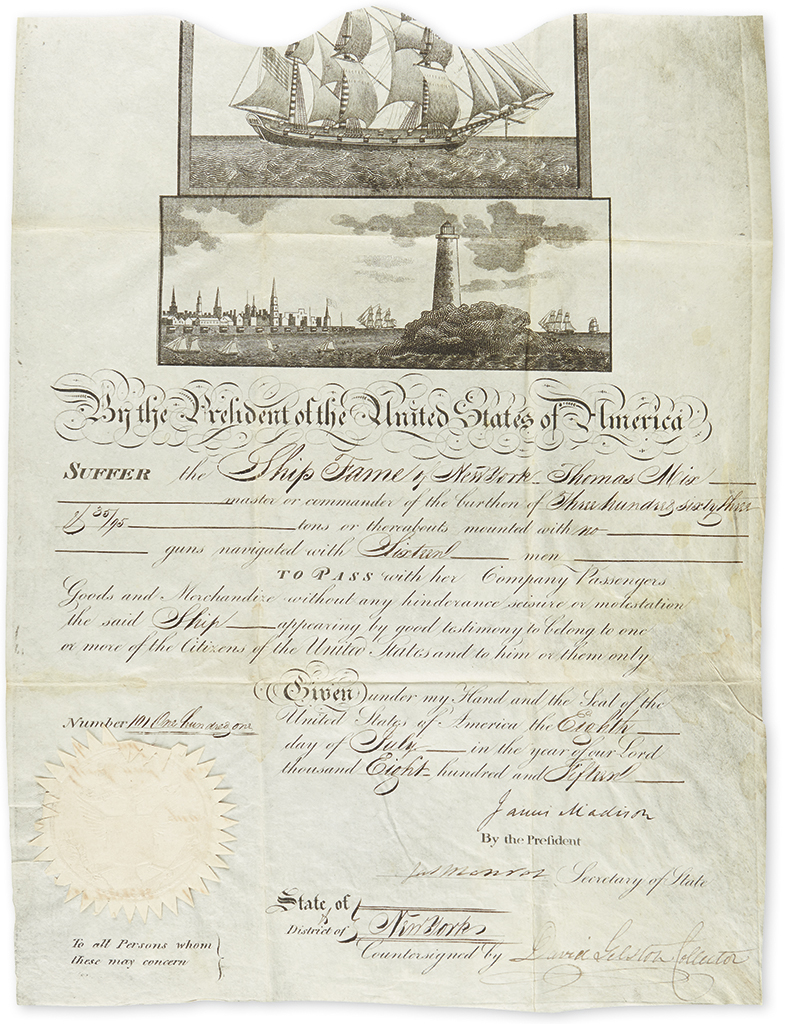 By the President of the United States of America
SUFFER the Ship Fame of New York Thomas Mix
master or commander of the burthen of Three hundred sixty three
& 35/95 tons or thereabouts mounted with no
guns navigated with Sixteen men
TO PASS with her Company Passengers
Goods and Merchandize without any hinderance seisure or molestation
the said Ship appearing by good testimony to belong to one
or more of the Citizens of the United States and to him or them only
Given under my Hand and the Seal of the
United States of America the Eighth
day of July in the year of our Lord
thousand Eight hundred and Fifteen
Number 101 One hundred one
James Madison
By the President
Jas Monroe Secretary of State
State of
District of New York
Countersigned by David Gelston Collector
To all Persons whom
these may concern